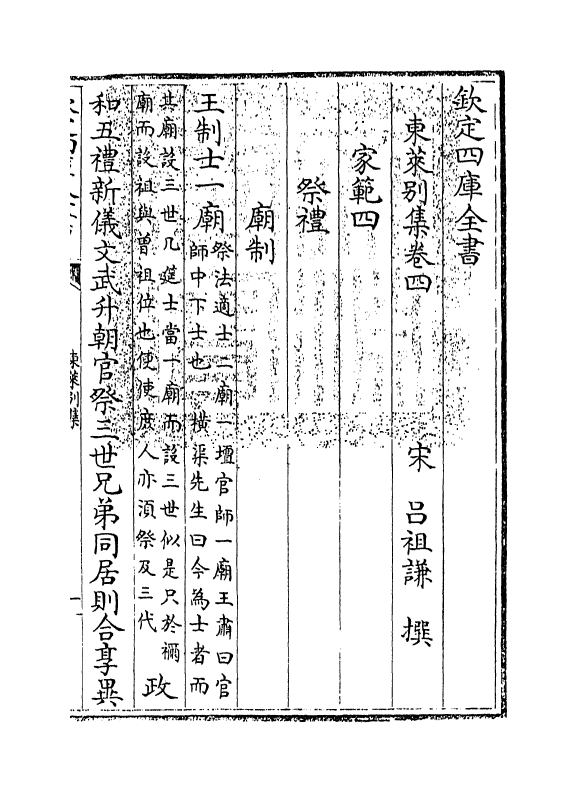 欽定四庫全書
東萊別集卷四 宋 呂祖謙 撰
家範四
祭禮
廟制
王制士一廟
祭法適士二廟一壇官師一廟王肅曰官
師中下士也 橫渠先生曰今為士者而
其廟設三世几筵士當一廟而設三世似是只於禰
廟而設祖與曾祖位也便使庶人亦須祭及三代
政
和五禮新儀文武升朝官祭三世兄弟同居則合享異
東萊別集
一